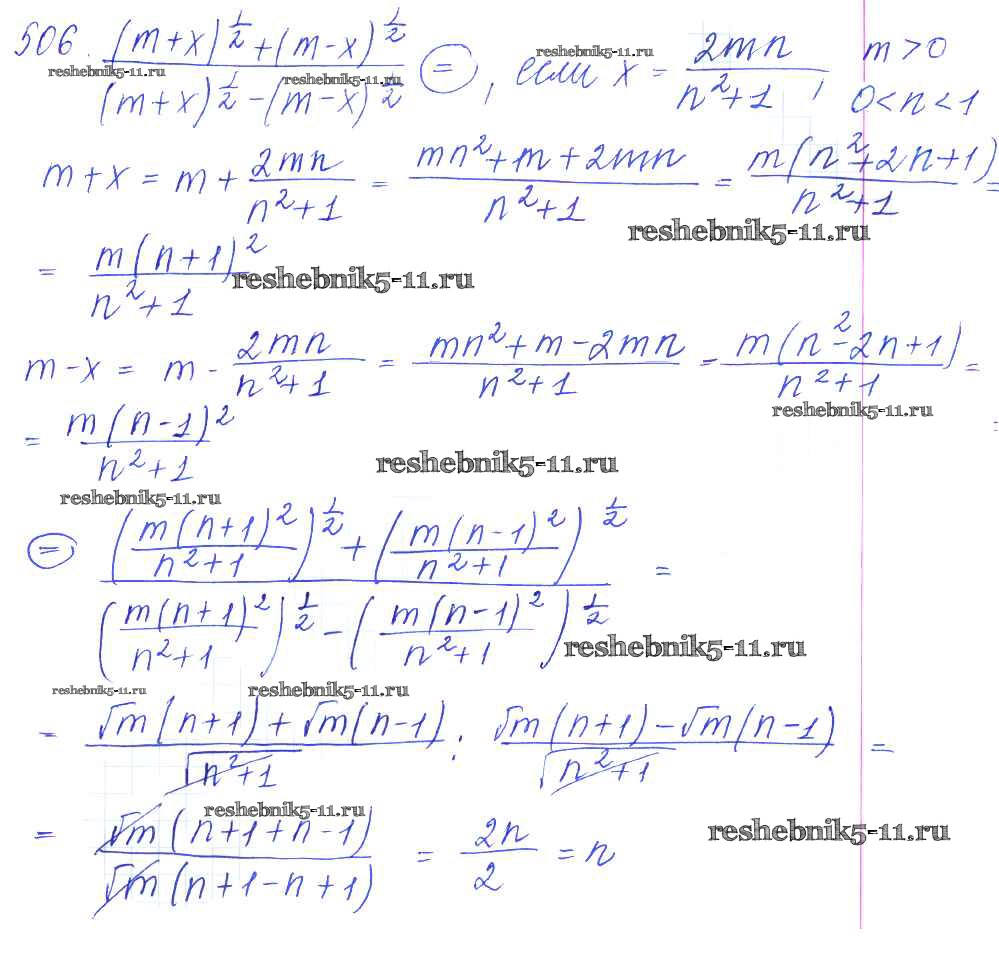 506. ((m+x)^{1/2} + (m-x)^{1/2}) / ((m+x)^{1/2} - (m-x)^{1/2}) (=), если x = 2mn / (n²+1), m > 0
0 < n < 1
reshebnik5-11.ru reshebnik5-11.ru reshebnik5-11.ru
m + x = m + 2mn / (n²+1) = (mn² + m + 2mn) / (n²+1) = m(n²+2n+1) / (n²+1) =
reshebnik5-11.ru
= m(n+1)² / (n²+1) reshebnik5-11.ru
m - x = m - 2mn / (n²+1) = (mn² + m - 2mn) / (n²+1) = m(n²-2n+1) / (n²+1) =
reshebnik5-11.ru
= m(n-1)² / (n²+1) =
reshebnik5-11.ru
reshebnik5-11.ru
(=) ((m(n+1)² / (n²+1))^{1/2} + (m(n-1)² / (n²+1))^{1/2}) / ((m(n+1)² / (n²+1))^{1/2} - (m(n-1)² / (n²+1))^{1/2}) =
reshebnik5-11.ru
reshebnik5-11.ru reshebnik5-11.ru
= (√m(n+1) + √m(n-1)) / √(n²+1) : (√m(n+1) - √m(n-1)) / √(n²+1) =
reshebnik5-11.ru
= √m(n+1+n-1) / √m(n+1-n+1) = 2n / 2 = n
reshebnik5-11.ru